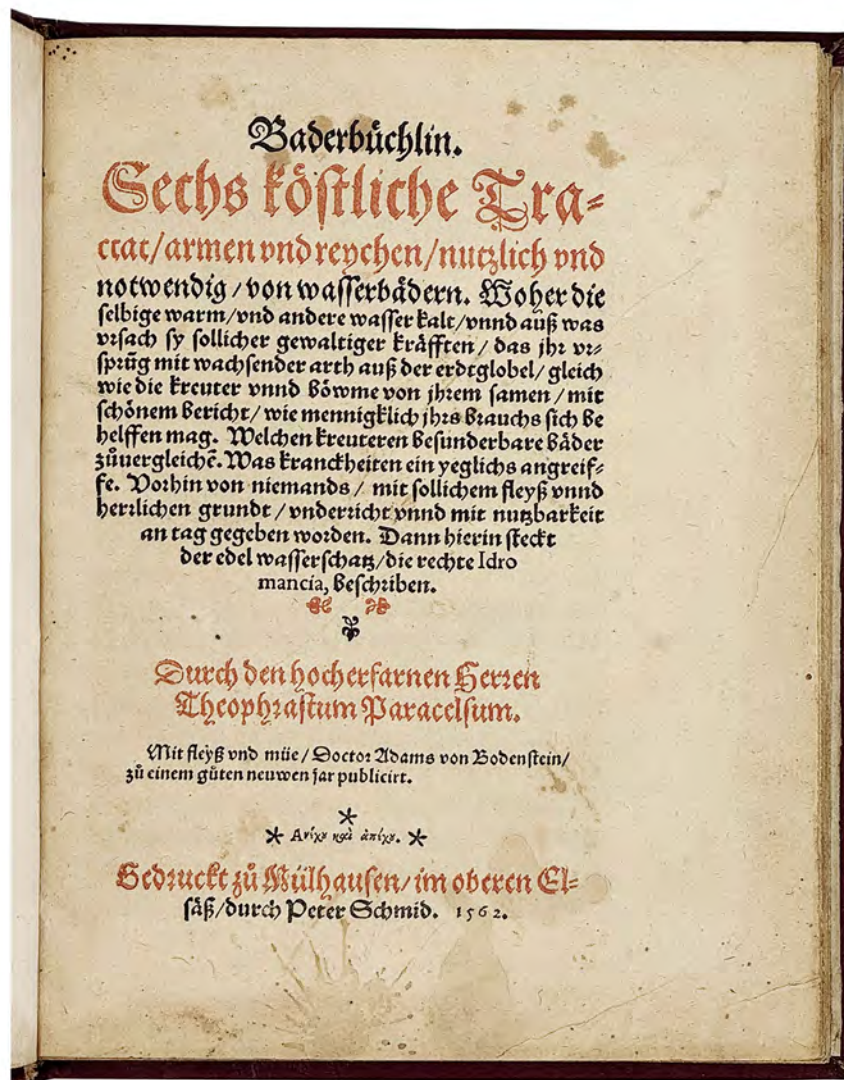 Baderbuͤchlin.
Sechs koͤſtliche Tra⸗
ctat/armen vnd reychen/nutzlich vnd
notwendig/von waſſerbaͤdern. Woher die
ſelbige warm/vnd andere waſſer kalt/vnnd auß was
vrſach ſy ſollicher gewaltiger kraͤfften/das jhr vr⸗
ſprūg mit wachſender arth auß der erdtglobel/gleich
wie die kreuter vnnd boͤwme von jhrem ſamen/mit
ſchoͤnem bericht/wie mennigklich jhrs brauchs ſich be
helffen mag. Welchen kreuteren beſunderbare baͤder
zuͦuergleichē. Was kranckheiten ein yeglichs angreif⸗
fe. Vorhin von niemands/mit ſollichem fleyß vnnd
herrlichen grundt/vnderricht vnnd mit nutzbarkeit
an tag gegeben worden. Dann hierin ſteckt
der edel waſſerſchatz/die rechte Idro
mancia, beſchriben.
Durch den hocherfarnen Herren
Theophraſtum Paracelſum.
Mit fleyß vnd muͤe/Doctor Adams von Bodenſtein/
zuͦ einem guͦten neuwen jar publicirt.
*
* Ανίχȣ καὶ ἀπίχȣ. *
Gedruckt zuͦ Muͤlhauſen/im oberen El⸗
ſaͤß/durch Peter Schmid. 1562.